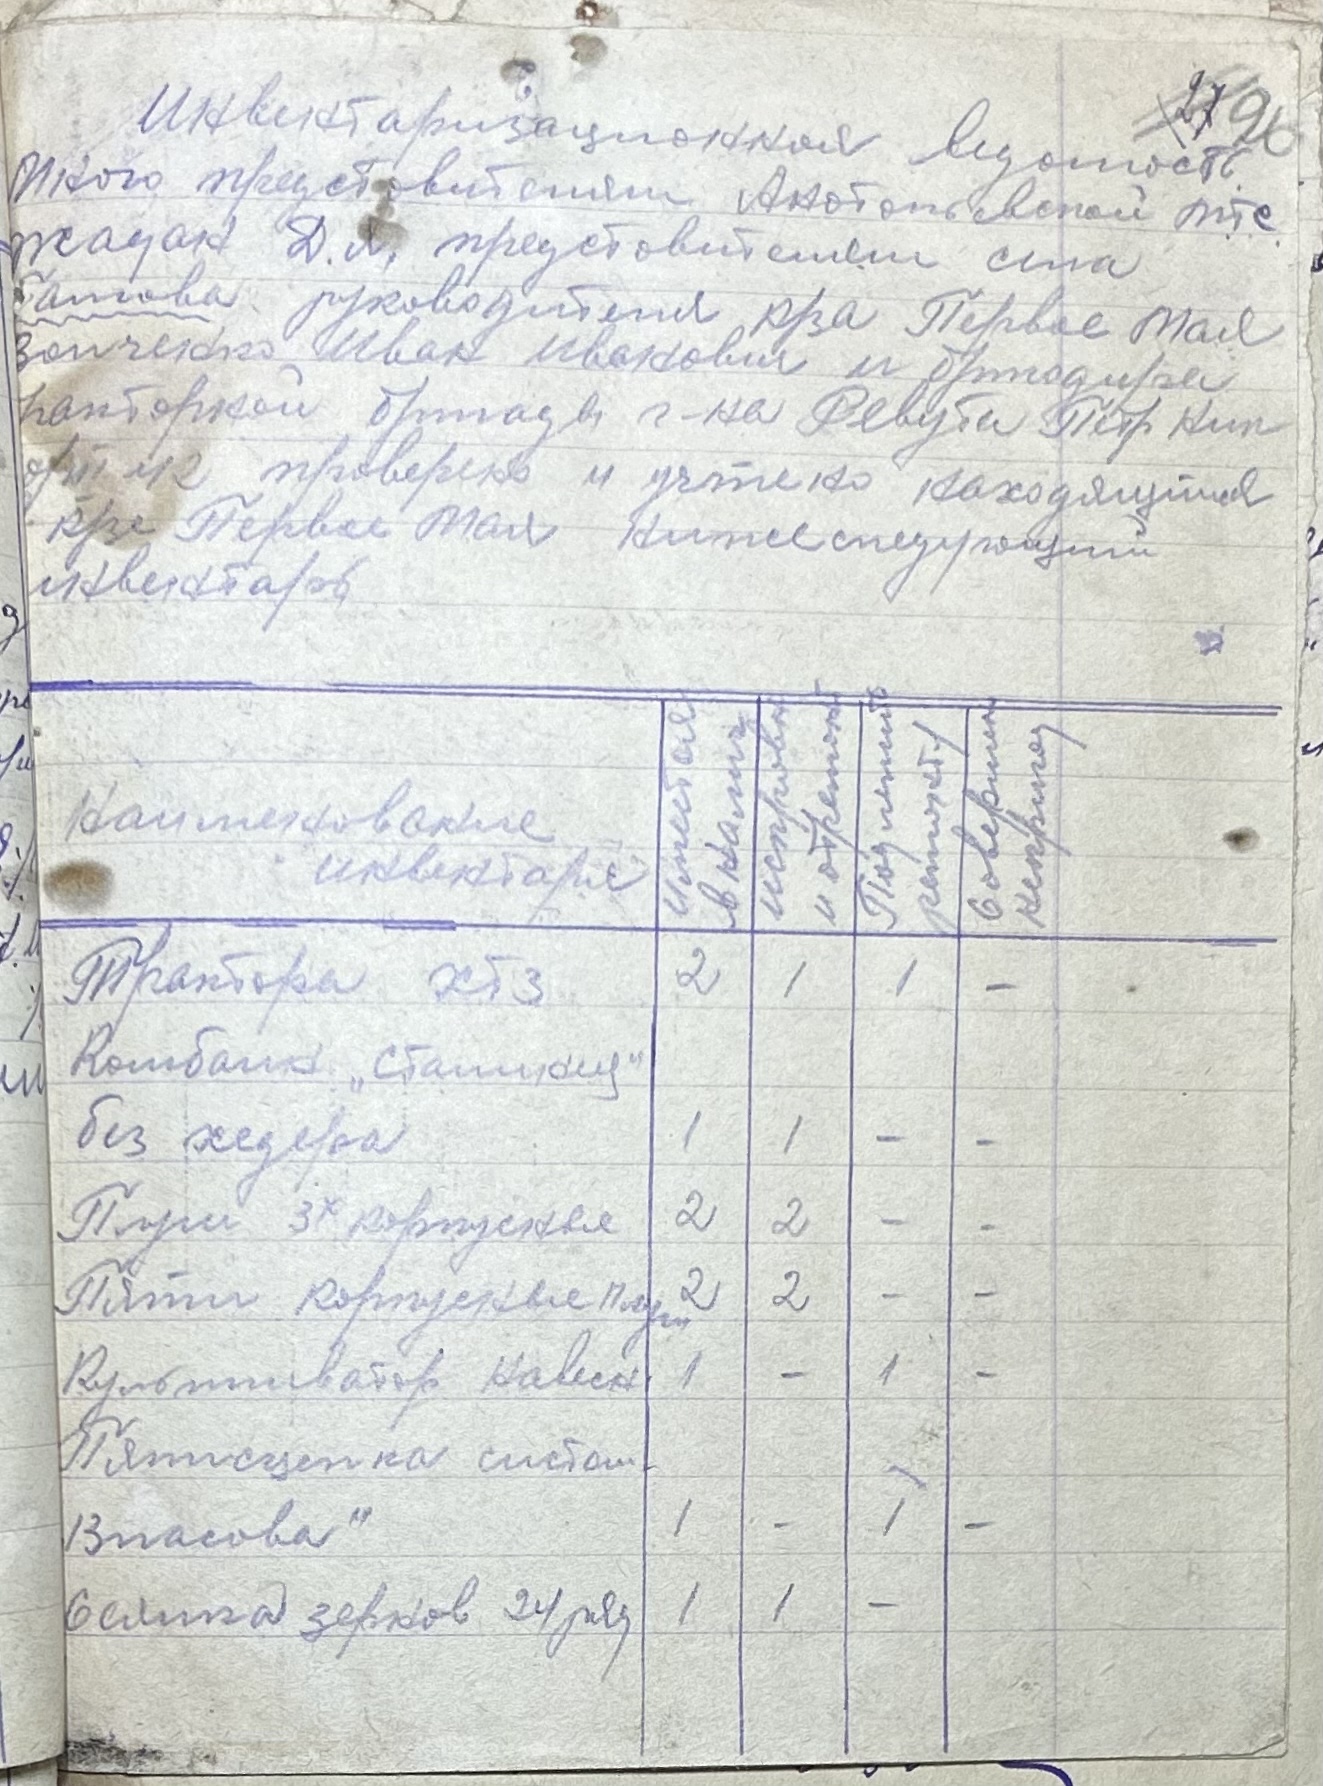 27 96
Инвентаризационная ведомость
Мною представителем Анатольевской МТС
Жадан Д.Л. представителем села
руководителя к-за Первое Мая
Зонченко Иван Иванович и бригадира
тракторной бригады г-на Ревуты Петр
проверено и учтено находящийся
к-зе Первое Мая нижеследующий
инвентарь
Наименование инвентаря | Имеется в налич | исправн и отремонт | Подлежит ремонту | Совершен непригод
Трактора ХТЗ 2 1 1 -
Комбайн „Сталинец"
без хедера 1 1 - -
Плуги 3х корпусные 2 2 - -
Пяти корпусные плуги 2 2 - -
Культиватор навесн. 1 - 1 -
Пятисцепка систем.
Власова" 1 - 1 -
Сеялка зернов 24 ряд 1 1 -